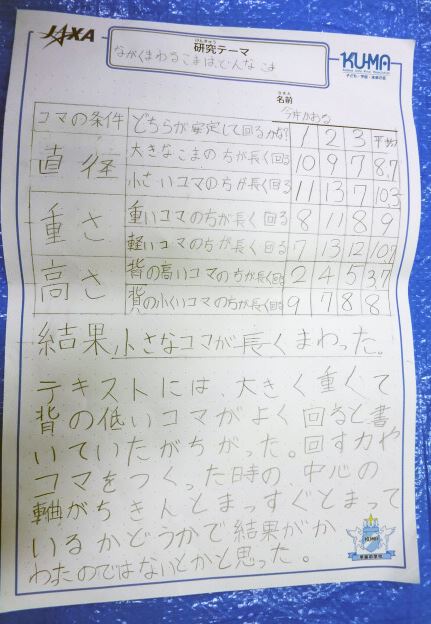 JAXA
けんきゅう
研究テーマ
KUMA
ながくまわるこまは、どんなこま
子ども・宇宙・未来の会
なまえ
名前
今井かおる
コマの条件 どちらが安定して回るかな? 1 2 3 平均
直径 大きなこまの方が長く回る 10 9 7 8,7
小さいコマの方が長く回る 11 13 7 10,3
重さ 重いコマの方が長く回る 8 11 8 9
軽いコマの方が長く回る 7 13 12 10,7
高さ 背の高いコマの方が長く回る 2 4 5 3,7
背の小くいコマの方が長く回る 9 7 8 8
結果、小さなコマが長くまわった。
テキストには、大きく重くて
背の低いコマがよく回ると書
いていたがちがった。回す力や
コマをつくった時の、中心の
軸がちきんとまっすぐとまって
いるかどうかで結果がか
わたのではないとかと思った。
KUMA
宇宙の学校